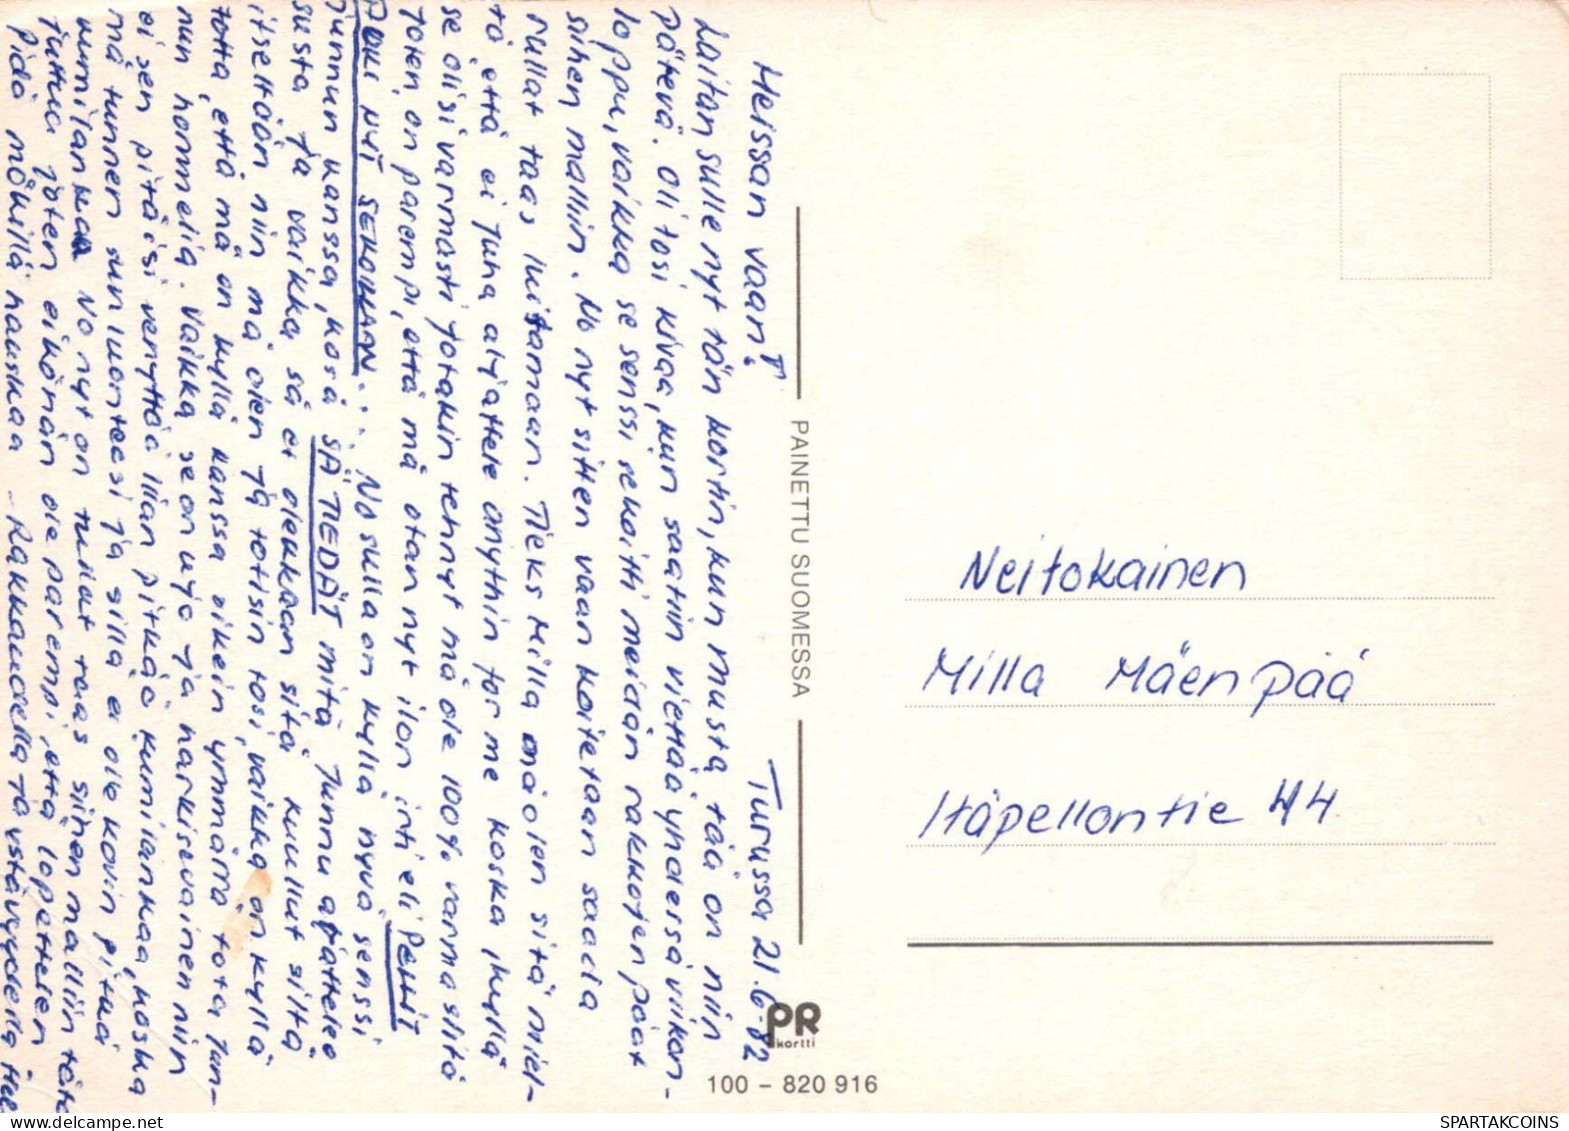 Heissan vaan!
Turussa 21.6-82
Laitan sulle nyt tän kortin, kun musta tää on niin
pätevä. Oli tosi kivaa, kun saatiin viettää yhdessä viikon-
loppu, vaikka se senssi sekoitti meidän rakkojen päät
siihen malliin. No nyt sitten vaan koitetaan saada
rullat taas luistamaan. Tieks Milla mä olen sitä miel-
tä että ei Juha ajattele mitään tor me koska, kyllä
se olisi varmasti jotakin tehnyt mä ole 100% varma siitä
joten, on parempi, että mä otan nyt ilon irti eli PEHIT
POKI NYT SEKOIVAN... No sulla on kyllä hyvä senssi
Junnun kanssa, kosä SÄ TIEDÄT mitä Junnu ajattelee
susta ja vaikka sä ei olekkaan sitä kuullut siltä
itseltään niin mä olen ja totisin tosi, vaikka on kyllä
totta, että mä on kyllä kanssa oikein ymmärrä tota Jun-
nun hommelia. Vaikka se on ujo ja harkitsevainen niin
ei sen pitäisi venyttää liian pitkää kumilankaa, koska
mä tunnen sun luonteesi ja sillä ei ole kovin pitkä
kumilankaa No nyt on rullat taas siihen malliin täte
juttua joten eikönän ole parempi, että lopettelen
Pidä mökillä hauskaa - Rakkaudella ja ystävyydellä Hel
PAINETTU SUOMESSA
PR
kortti
100 – 820 916
Neitokainen
Milla Mäenpää
Itäpellontie 44
SPARTAKCOINS